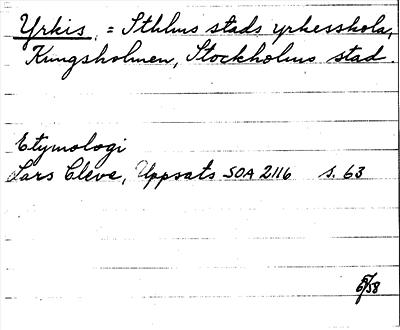 Yrkis, = Sthlms stads yrkesskola,
Kungsholmen, Stockholms stad.
Etymologi
Lars Cleve, Uppsats SOA 2116 s. 63